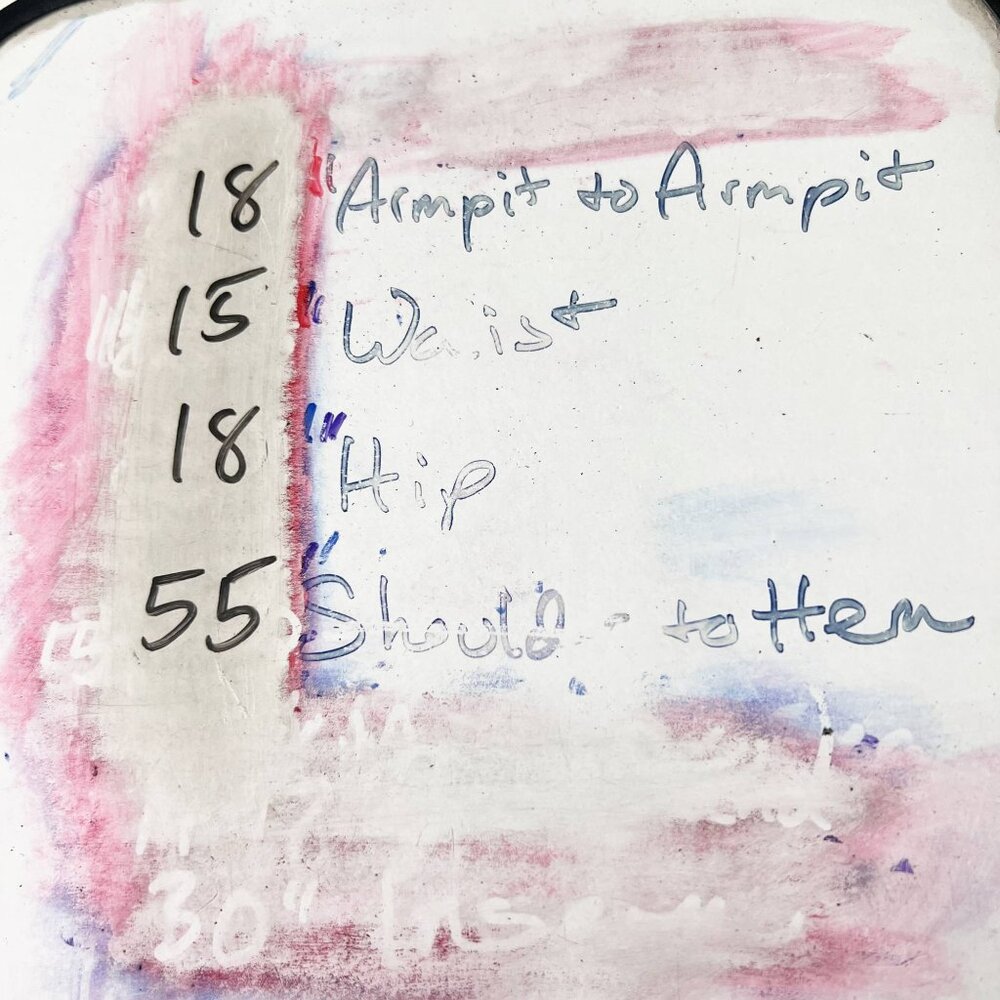 18 "Armpit to Armpit
15 "Waist
18 "Hip
55 " to Hem
30" Inseam